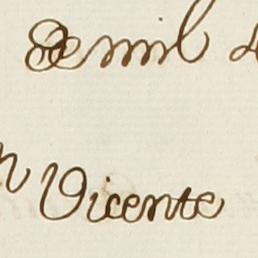 de mil
Vicente